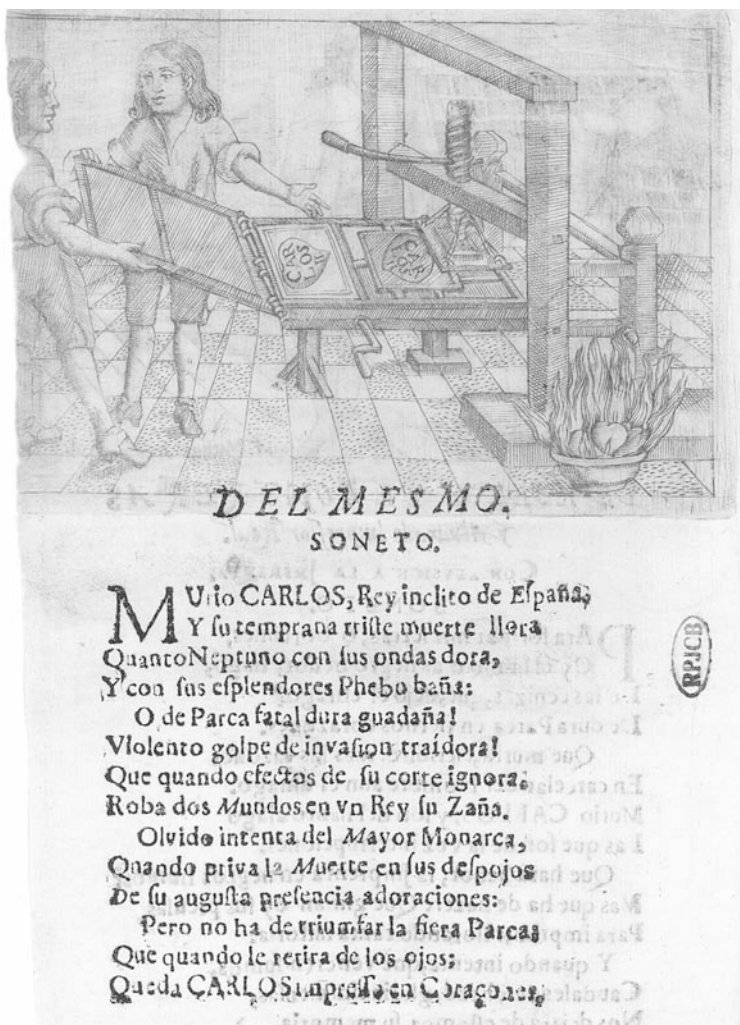 CAR
LOS
II
CAR
LOS
DEL MESMO.
SONETO.
MUrio CARLOS, Rey inclito de España;
Y ſu temprana triſte muerte llora
Quanto Neptuno con ſus ondas dora,
Y con ſus eſplendores Phebo baña:
O de Parca fatal dura guadaña!
Violento golpe de invaſion traídora!
Que quando efectos de ſu corte ignora;
Roba dos Mundos en vn Rey ſu Zaña.
Olvido intenta del Mayor Monarca,
Quando priva la Muerte en ſus deſpojos
De ſu auguſta preſencia adoraciones:
Pero no ha de triumfar la fiera Parca;
Que quando le retira de los ojos;
Queda CARLOS impreſſo en Coraçones.
RPJCB